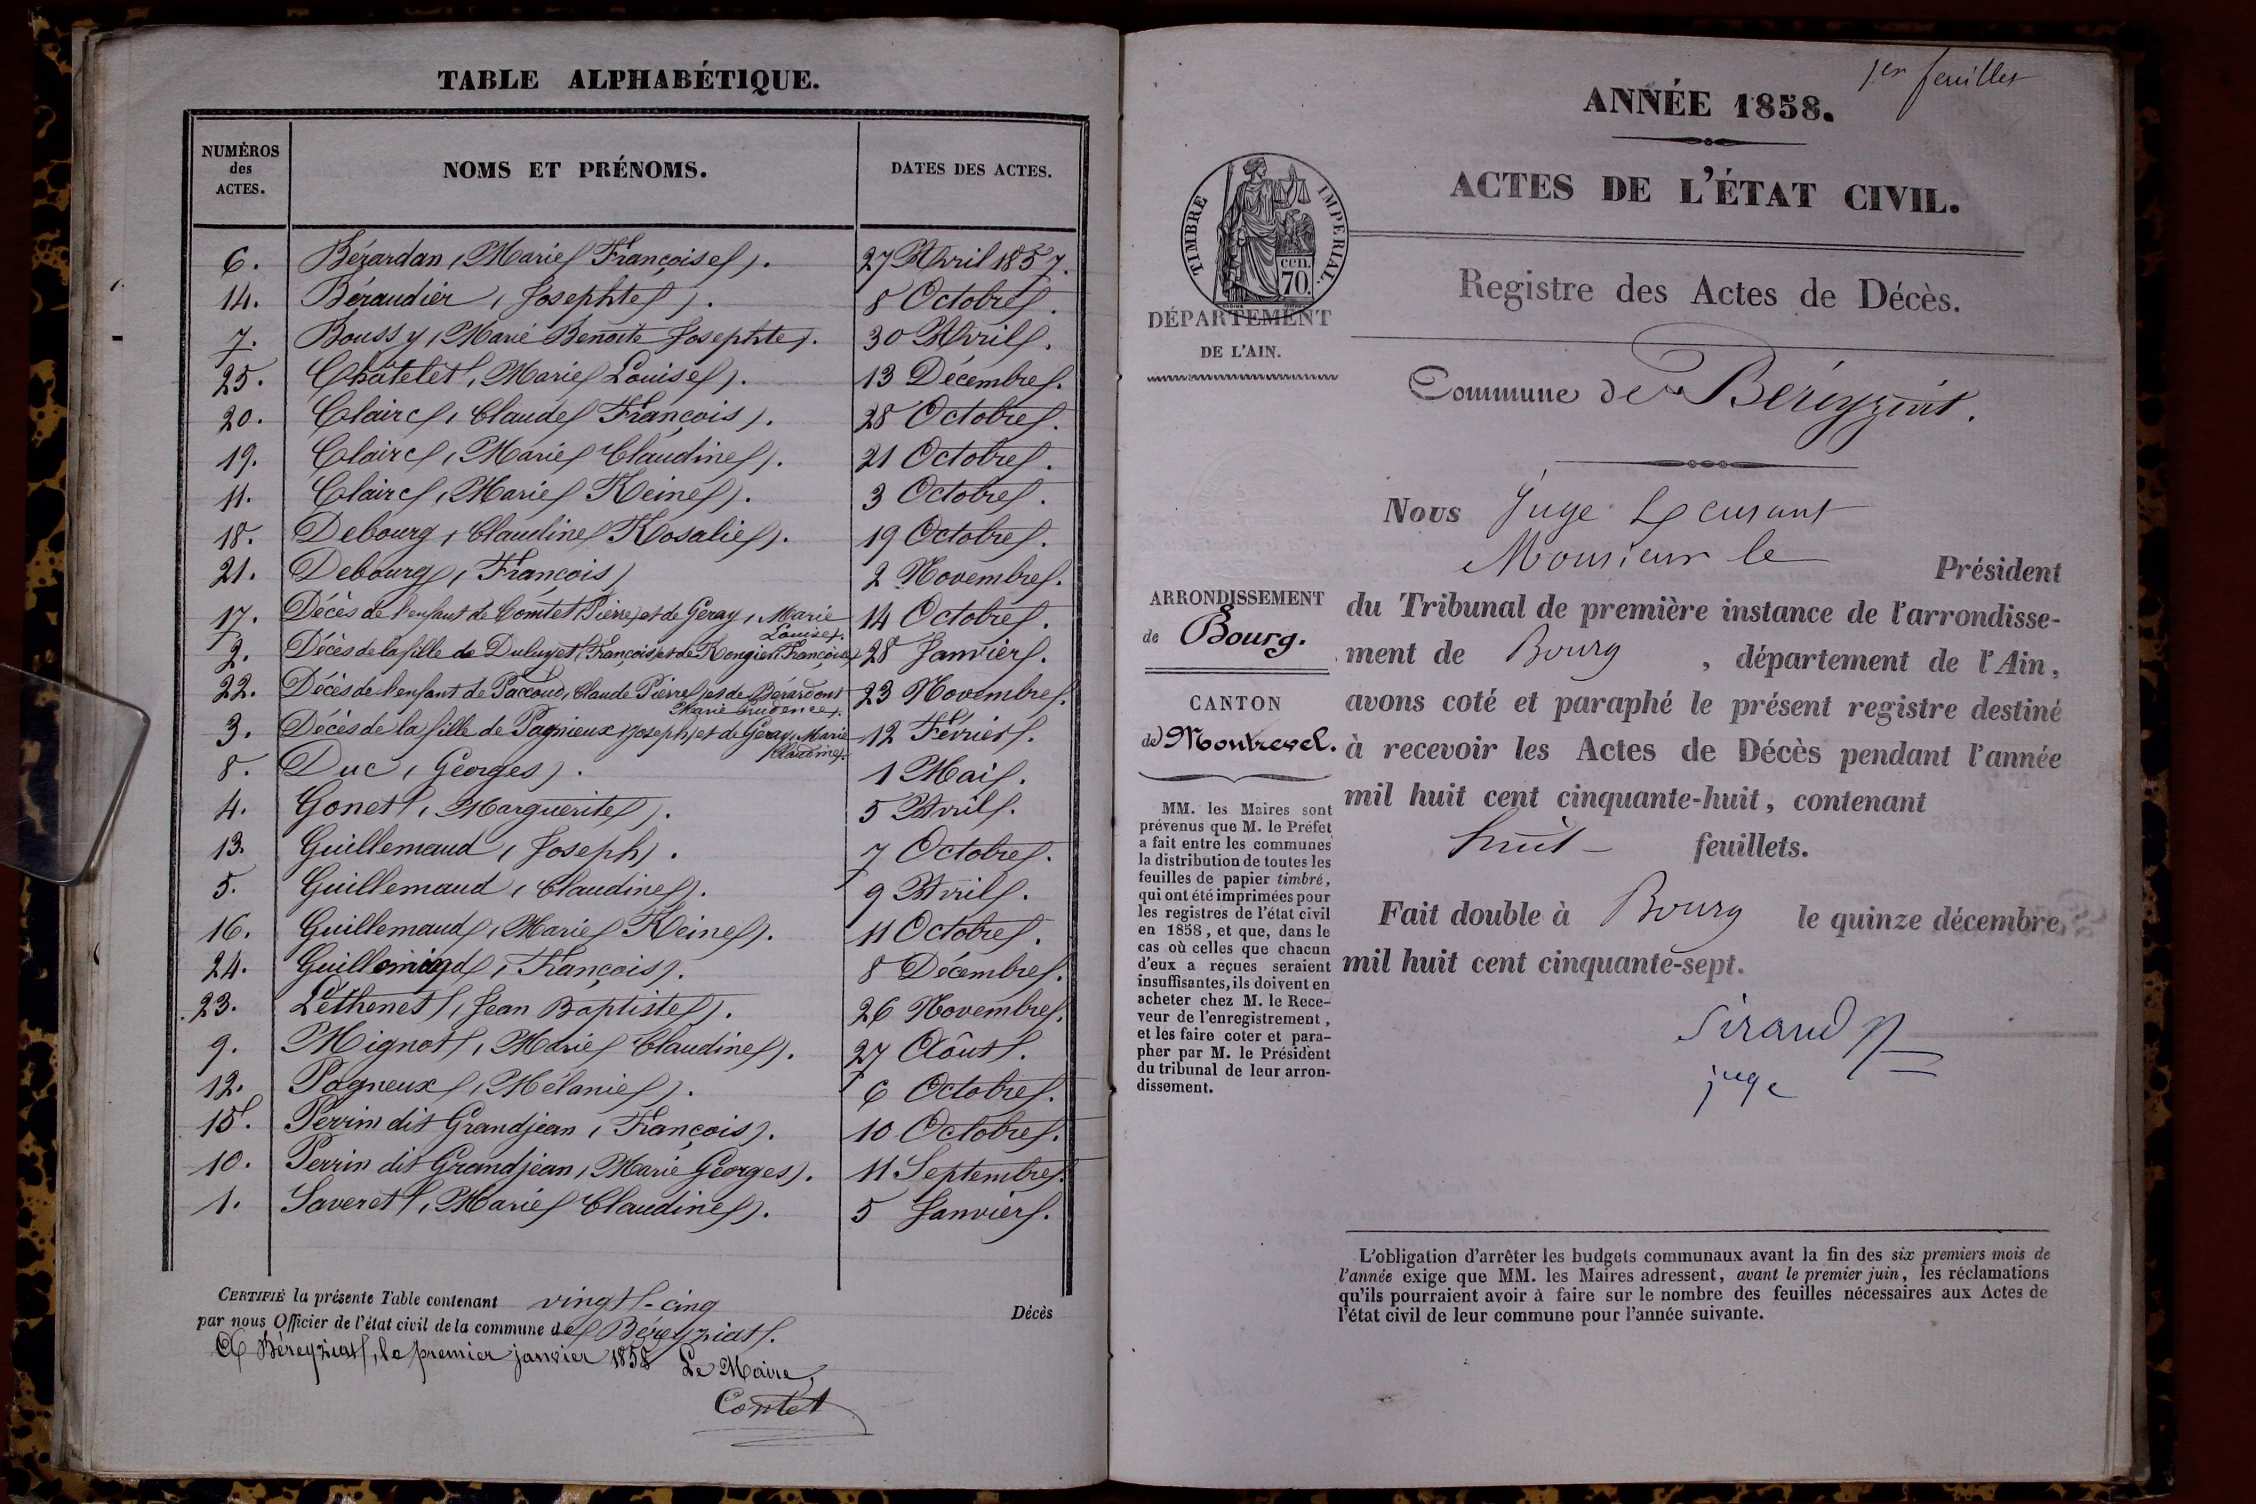 TABLE ALPHABÉTIQUE.
NUMÉROS des ACTES. NOMS ET PRÉNOMS. DATES DES ACTES.
6. Bérardan (Marie Françoise). 27 Avril 1857.
14. Béraudier (Josephte). 8 Octobre.
7. Boussy (Marie Benoite Josephte). 30 Avril.
25. Châtelet (Marie Louise). 13 Décembre.
20. Claire (Claude François). 28 Octobre.
19. Claire (Marie Claudine). 21 Octobre.
11. Claire (Marie Reine). 3 Octobre.
18. Debourg (Claudine Rosalie). 19 Octobre.
21. Debourg (François) 2 Novembre.
17. Décès de l'enfant de Comtet (Pierre) et de Geray (Marie Louise). 14 Octobre.
2. Décès de la fille de (François) et de (Françoise) 28 Janvier.
22. Décès de l'enfant de Paccoud (Claude Pierre) et de Bérardont Marie Prudence). 23 Novembre.
3. Décès de la fille de Pagnieux (Joseph) et de Geray (Marie Claudine). 12 Février.
8. Duc (Georges). 1 Mai.
4. Gonet (Marguerite). 5 Avril.
13. Guillemaud (Joseph). 7 Octobre.
5. Guillemaud (Claudine). 9 Avril.
16. Guillemaud (Marie Reine). 11 Octobre.
24. (François). 8 Décembre.
23. Léthenet (Jean Baptiste). 26 Novembre.
9. Mignot (Marie Claudine). 27 Aôut.
12. Pagneux (Mélanie). 6 Octobre.
15. Perrin dit Grandjean (François). 10 Octobre.
10. Perrin dit Grandjean (Marie Georges). 11 Septembre.
1. Saveret (Marie Claudine). 5 Janvier.
CERTIFIÉ la présente Table contenant vingt-cinq Décès
par nous Officier de l'état civil de la commune de Béreyziat.
A Béreyziat, le premier janvier 1858 Le Maire,
Comtet
1er feuillet
ANNÉE 1858.
ACTES DE L'ÉTAT CIVIL.
TIMBRE IMPERIAL.
cen.
70.
Registre des Actes de Décès.
DÉPARTEMENT
DE L'AIN.
Commune de Béreyziat.
Nous Juge
Monsieur le Président
ARRONDISSEMENT
de Bourg.
CANTON
de Montrevel.
du Tribunal de première instance de l'arrondisse-
ment de Bourg, département de l'Ain,
avons coté et paraphé le présent registre destiné
à recevoir les Actes de Décès pendant l'année
mil huit cent cinquante-huit, contenant
huit feuillets.
Fait double à Bourg le quinze décembre
mil huit cent cinquante-sept.
Sirand
juge
MM. les Maires sont
prévenus que M. le Préfet
a fait entre les communes
la distribution de toutes les
feuilles de papier timbré,
qui ont été imprimées pour
les registres de l'état civil
en 1858, et que, dans le
cas où celles que chacun
d'eux a reçues seraient
insuffisantes, ils doivent en
acheter chez M. le Rece-
veur de l'enregistrement,
et les faire coter et para-
pher par M. le Président
du tribunal de leur arron-
dissement.
L'obligation d'arrêter les budgets communaux avant la fin des six premiers mois de
l'année exige que MM. les Maires adressent, avant le premier juin, les réclamations
qu'ils pourraient avoir à faire sur le nombre des feuilles nécessaires aux Actes de
l'état civil de leur commune pour l'année suivante.